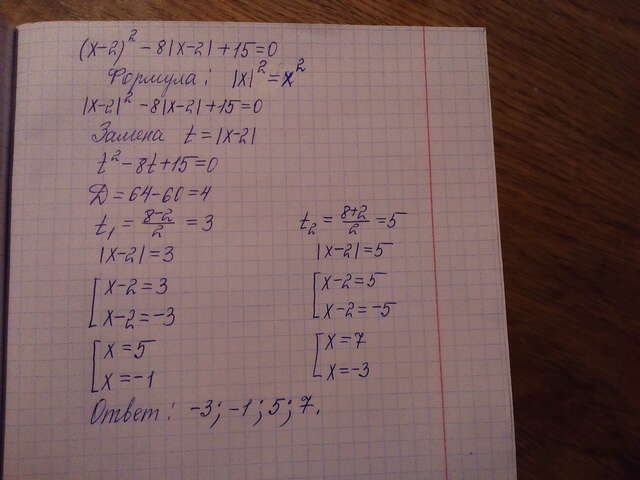 (x-2)² - 8|x-2| + 15 = 0
Формула: |x|² = x²
|x-2|² - 8|x-2| + 15 = 0
Замена t = |x-2|
t² - 8t + 15 = 0
D = 64 - 60 = 4
t₁ = (8-2)/2 = 3
|x-2| = 3
[x-2 = 3
x-2 = -3
[x = 5
x = -1
t₂ = (8+2)/2 = 5
|x-2| = 5
[x-2 = 5
x-2 = -5
[x = 7
x = -3
Ответ: -3; -1; 5; 7.